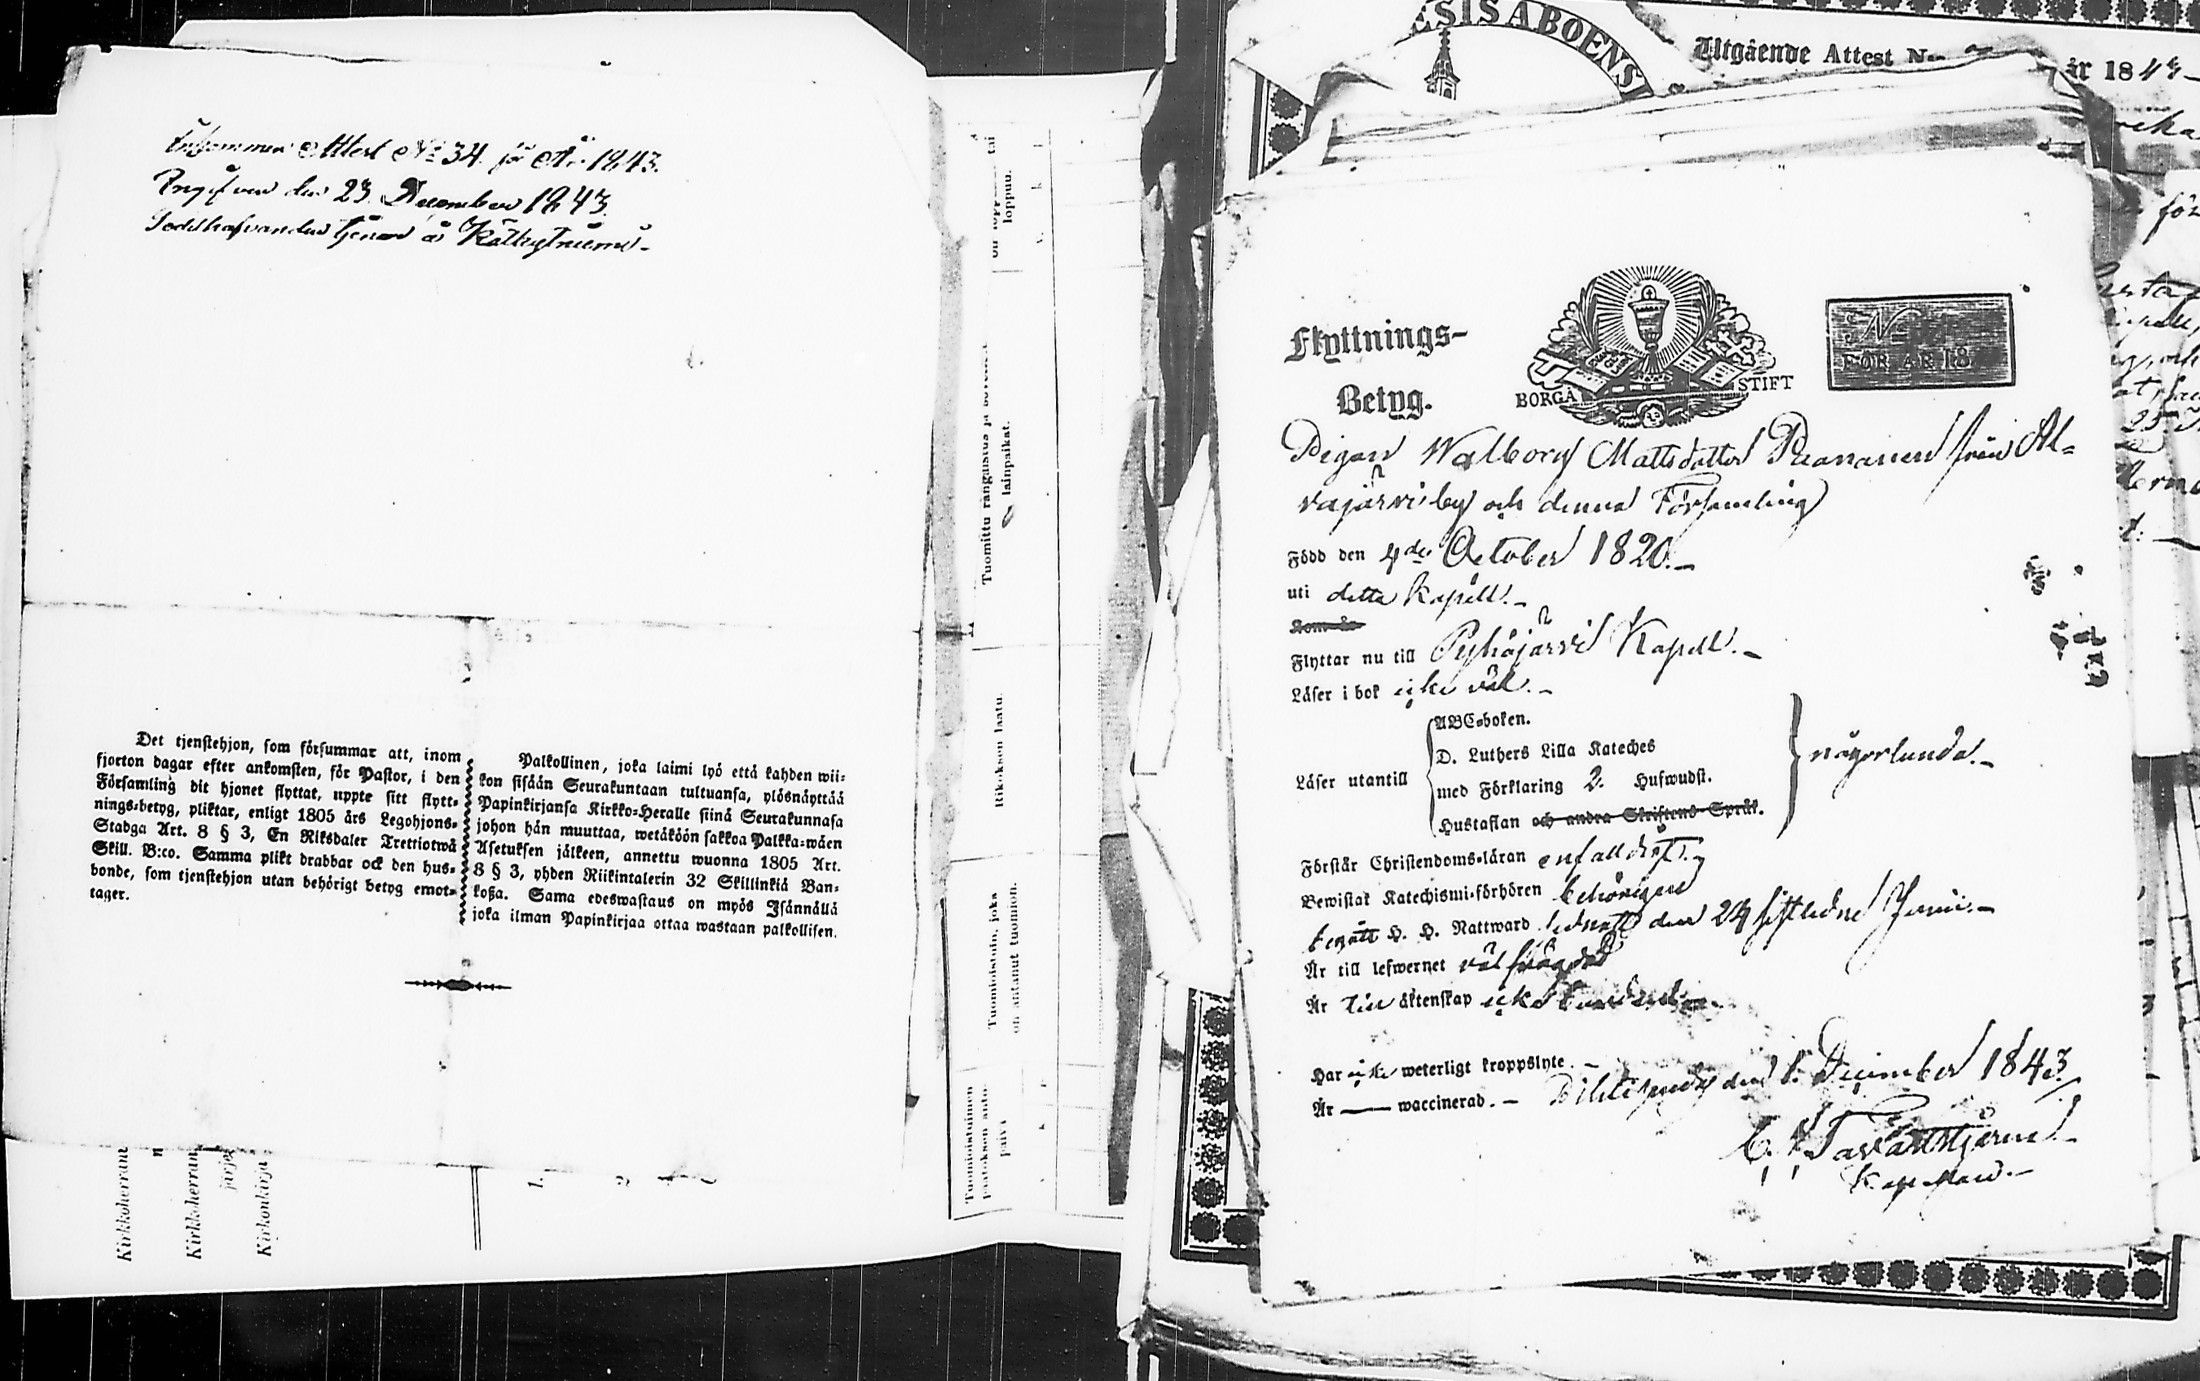 Inkommen Attest No 34. för År 1843.
den 23 December 1843.
Det tjenstehjon, som försummar att, inom
fjorton dagar efter ankomsten, för Pastor, i den
Församling dit hjonet flyttat, uppte sitt flytt-
nings-betyg, pliktar, enligt 1805 års Legohjons-
Stadga Art. 8 § 3, En Riksdaler Trettiotwå
Skill. B:co. Samma plikt drabbar ock den hus-
bonde, som tjenstehjon utan behörigt betyg emot-
tager.
Palkollinen, joka laimi lyö että kahden wii-
kon sisään Seurakuntaan tultuansa, ylösnäyttää
Papinkirjansa Kirkko-Heralle siinä Seurakunnasa
johon hän muuttaa, wetäköön sakkoa Palkka-wäen
Asetuksen jälkeen, annettu wuonna 1805 Art.
8 § 3, yhden Riikintalerin 32 Skillinkiä Ban-
koßa. Sama edeswastaus on myös Isännällä
joka ilman Papinkirjaa ottaa wastaan palkollisen.
Kirkkoherran
Kirkkoherran
Kirkonkirja
1.
tai
loppuu.
Tuomittu rangaistus ja
lainpaikat.
Rikoksen laatu.
Tuomioistuin, joka
on antanut tuomion.
Tuomioistuimen
päätöksen anto-
päivä
ESIS ABOENS
Utgående Attest No år 184
Flyttnings-
Betyg.
BORGÅ STIFT
No
FÖR ÅR 18
Pigan Walborg Mattsdotter Paananen från Al-
vajärvi by och denna Församling
Född den 4de October 1820.-
uti detta Kapell.-
Kom år
Flyttar nu till Pyhäjärvi Kapell.-
Läser i bok icke väl.-
Läser utantill
ABC-boken.
D. Luthers Lilla Kateches
med Förklaring 2. Hufwudst.
Hustaflan och andra Skriftens Språk.
någorlunda.-
Förstår Christendoms-läran enfalldigt.
Bewistat Katechismi-förhören behörigen
begått H. H. Nattward den 24 sistledne Junii.-
Är till lefwernet välfrägdad
Är till äktenskap icke
Har icke weterligt kroppslyte.-
Är — waccinerad.- den December 1843
Kapellan.-